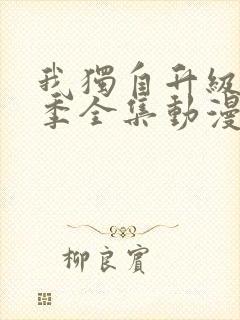 我獨自升級
季全集動漫
柳良賓